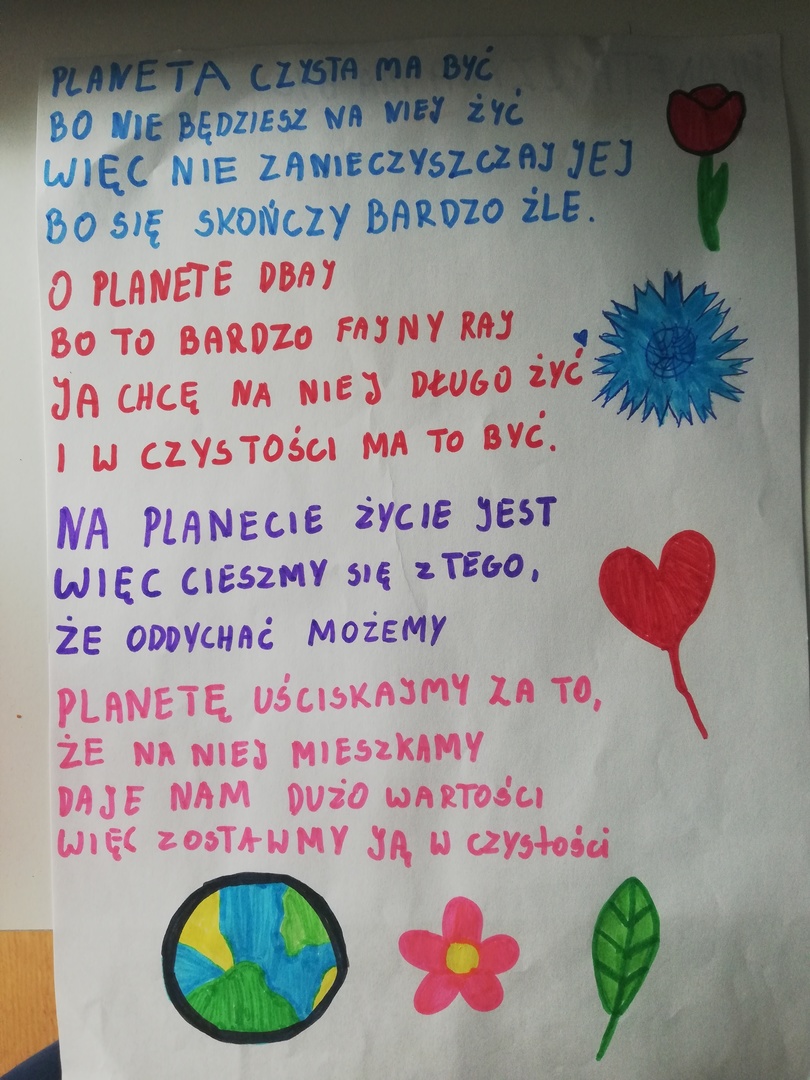 PLANETA CZYSTA MA BYĆ
BO NIE BĘDZIESZ NA NIEJ ŻYĆ
WIĘC NIE ZANIECZYSZCZAJ JEJ
BO SIĘ SKOŃCZY BARDZO ŹLE.
O PLANETE DBAJ
BO TO BARDZO FAJNY RAJ
JA CHCĘ NA NIEJ DŁUGO ŻYĆ
I W CZYSTOŚCI MA TO BYĆ.
NA PLANECIE ŻYCIE JEST
WIĘC CIESZMY SIĘ Z TEGO,
ŻE ODDYCHAĆ MOŻEMY
PLANETĘ UŚCISKAJMY ZA TO,
ŻE NA NIEJ MIESZKAMY
DAJE NAM DUŻO WARTOŚCI
WIĘC ZOSTAWMY JĄ W CZYSTOŚCI